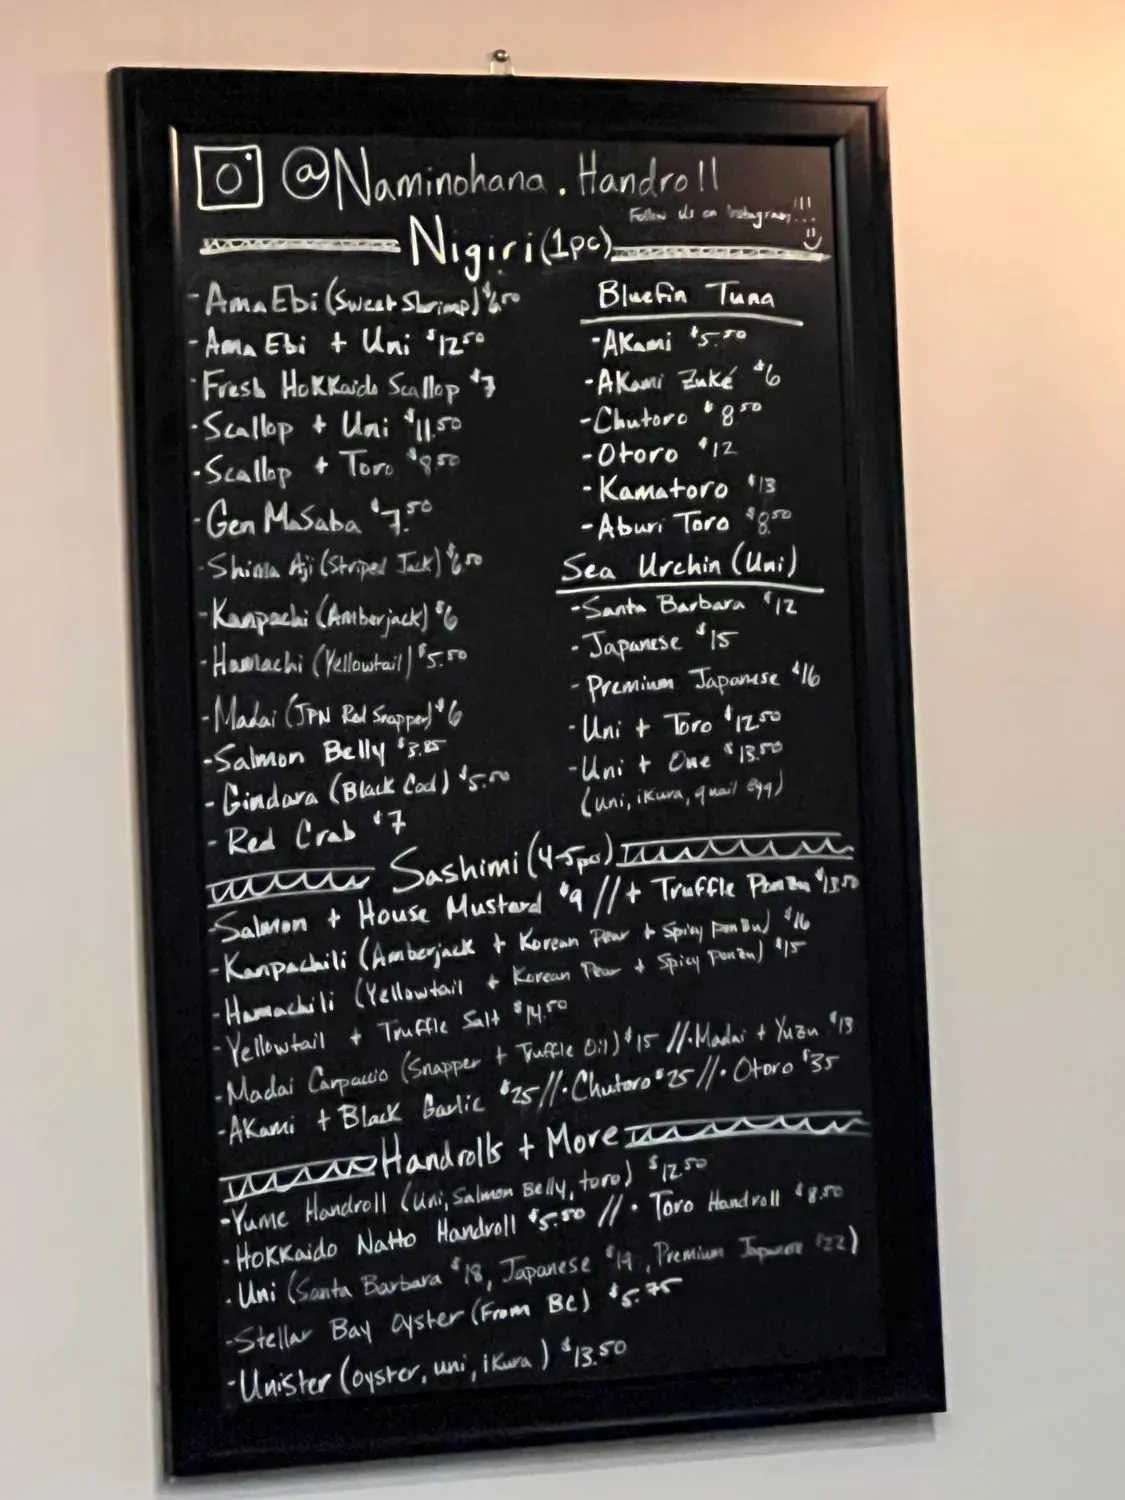 @Naminohana.Handroll
Follow us on Instagram!!!
Nigiri (1pc)
- Ama Ebi (Sweet Shrimp) $6.50
- Ama Ebi + Uni $12.50
- Fresh Hokkaido Scallop $7
- Scallop + Uni $11.50
- Scallop + Toro $8.50
- Gen Masaba $7.50
- Shima Aji (Striped Jack) $6.50
- Kanpachi (Amberjack) $6
- Hamachi (Yellowtail) $5.50
- Madai (JPN Red Snapper) $6
- Salmon Belly
- Gindara (Black Cod) $5.50
- Red Crab $7
Bluefin Tuna
- Akami $5.50
- Akami Zuké $6
- Chutoro $8.50
- Otoro $12
- Kamatoro $13
- Aburi Toro $8.50
Sea Urchin (Uni)
- Santa Barbara $12
- Japanese $15
- Premium Japanese $16
- Uni + Toro $12.50
- Uni + One $13.50
(uni, ikura, quail egg)
Sashimi (4-5pcs)
- Salmon + House Mustard $9 // + Truffle Ponzu $13.50
- Kanpachili (Amberjack + Korean Pear + Spicy Ponzu) $16
- Hamachili (Yellowtail + Korean Pear + Spicy Ponzu) $15
- Yellowtail + Truffle Salt $14.50
- Madai Carpaccio (Snapper + Truffle Oil) $15 // · Madai + Yuzu $13
- Akami + Black Garlic $25 // · Chutoro $25 // · Otoro $35
Handrolls + More
- Yume Handroll (uni, Salmon Belly, toro) $12.50
- Hokkaido Natto Handroll $5.50 // · Toro Handroll $8.50
- Uni (Santa Barbara $18, Japanese $19, Premium Japanese $22)
- Stellar Bay Oyster (From BC) $5.75
- Unister (oyster, uni, ikura) $13.50